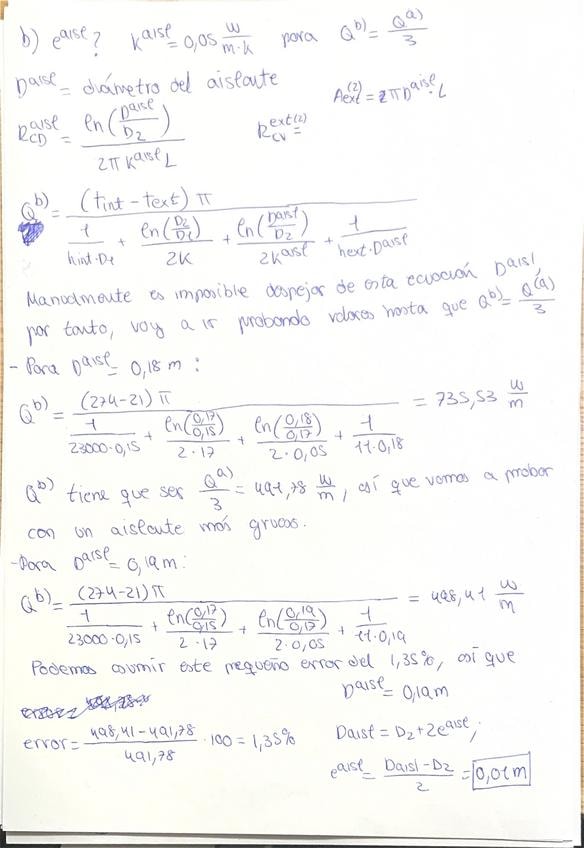 b) eᵃⁱˢˡ? Kᵃⁱˢˡ = 0,05 W/(m·K) para Qᵇ⁾ = Qᵃ⁾/3
Dᵃⁱˢˡ = diámetro del aislante Aext⁽²⁾ = 2πDᵃⁱˢˡ·L
R_CDᵃⁱˢˡ = ln(Dᵃⁱˢˡ/D₂) / (2π Kᵃⁱˢˡ L) R_CVᵉˣᵗ⁽²⁾ =
Qᵇ⁾ = (tint - text) π / (1/(hint·D₁) + ln(D₂/D₁)/(2K) + ln(Dᵃⁱˢˡ/D₂)/(2Kᵃⁱˢˡ) + 1/(hext·Dᵃⁱˢˡ))
Manualmente es imposible despejar de esta ecuación Dᵃⁱˢˡ
por tanto, voy a ir probando valores hasta que Qᵇ⁾ = Qᵃ⁾/3
- Para Dᵃⁱˢˡ = 0,18 m :
Qᵇ⁾ = (274-21) π / (1/(23000·0,15) + ln(0,17/0,15)/(2·17) + ln(0,18/0,17)/(2·0,05) + 1/(11·0,18)) = 735,53 W/m
Qᵇ⁾ tiene que ser Qᵃ⁾/3 = 491,78 W/m, así que vamos a probar
con un aislante más grueso.
- Para Dᵃⁱˢˡ = 0,19 m :
Qᵇ⁾ = (274-21) π / (1/(23000·0,15) + ln(0,17/0,15)/(2·17) + ln(0,19/0,17)/(2·0,05) + 1/(11·0,19)) = 498,41 W/m
Podemos asumir este pequeño error del 1,35%, así que
Dᵃⁱˢˡ = 0,19 m
error = (498,41 - 491,78)/491,78 · 100 = 1,35% Daisl = D₂ + 2eᵃⁱˢˡ;
eᵃⁱˢˡ = (Daisl - D₂)/2 = 0,01 m